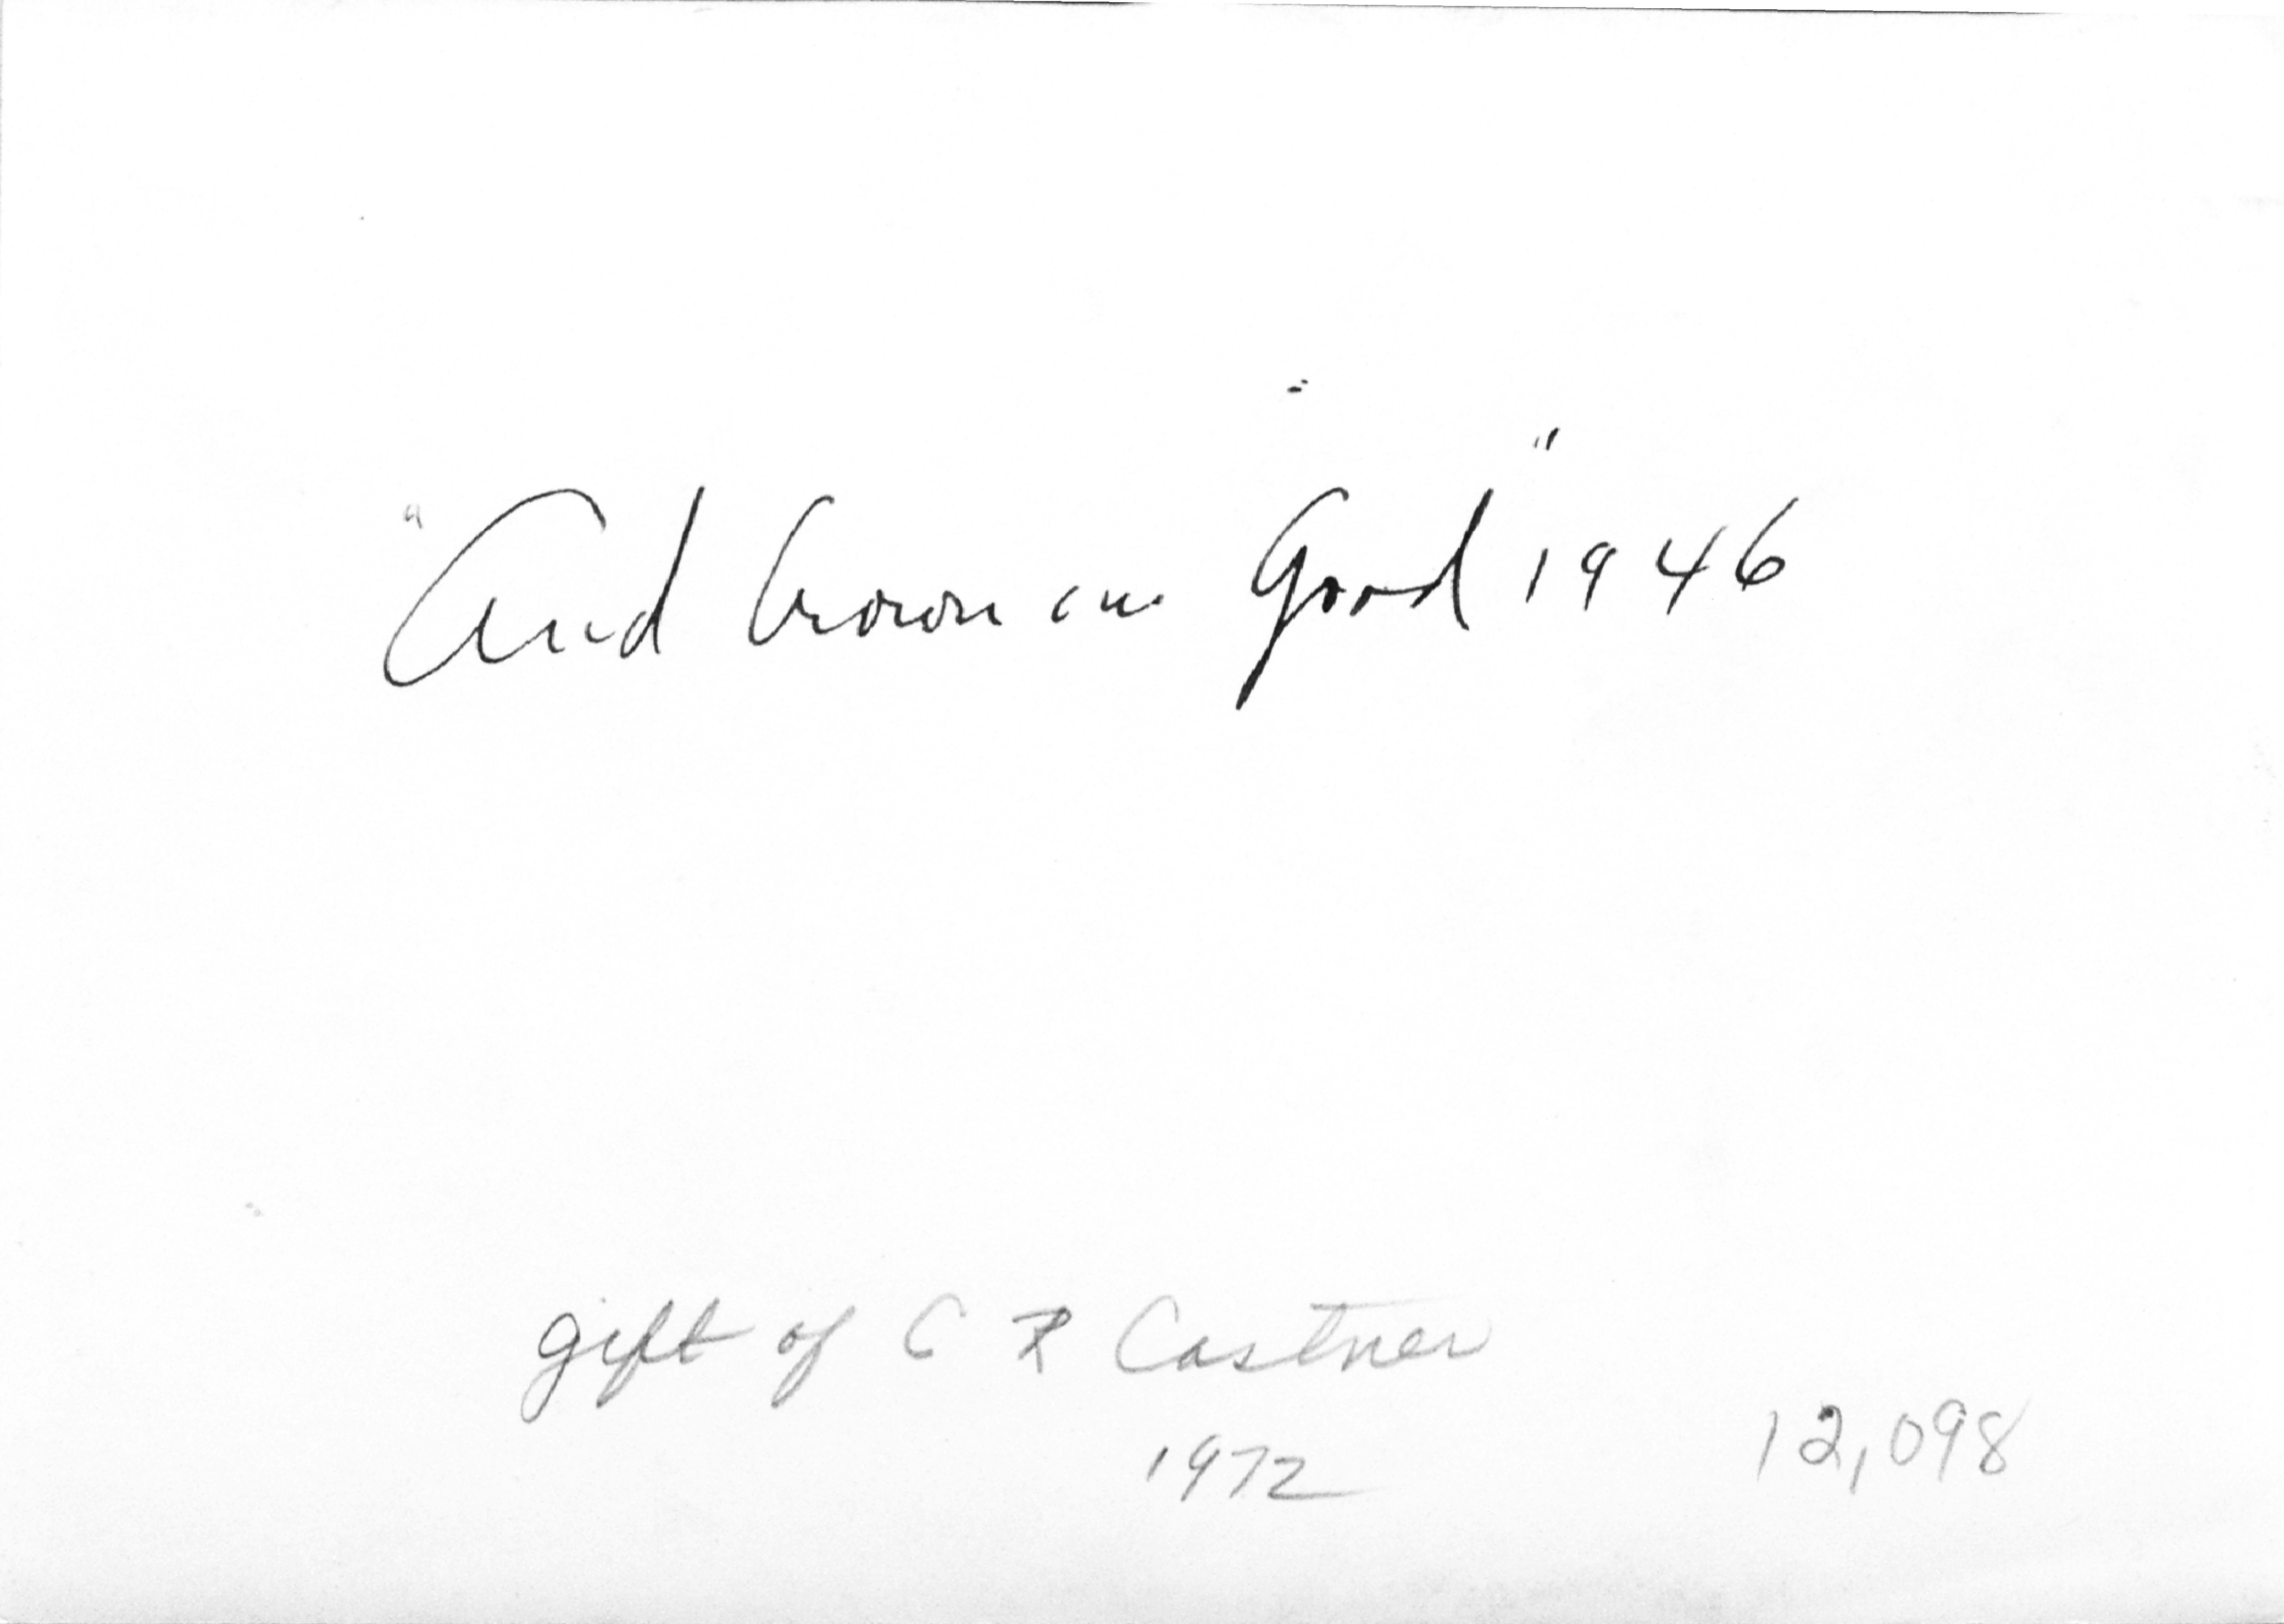 "And Crown Good" 1946
gift of C R Castner
1972
12,098